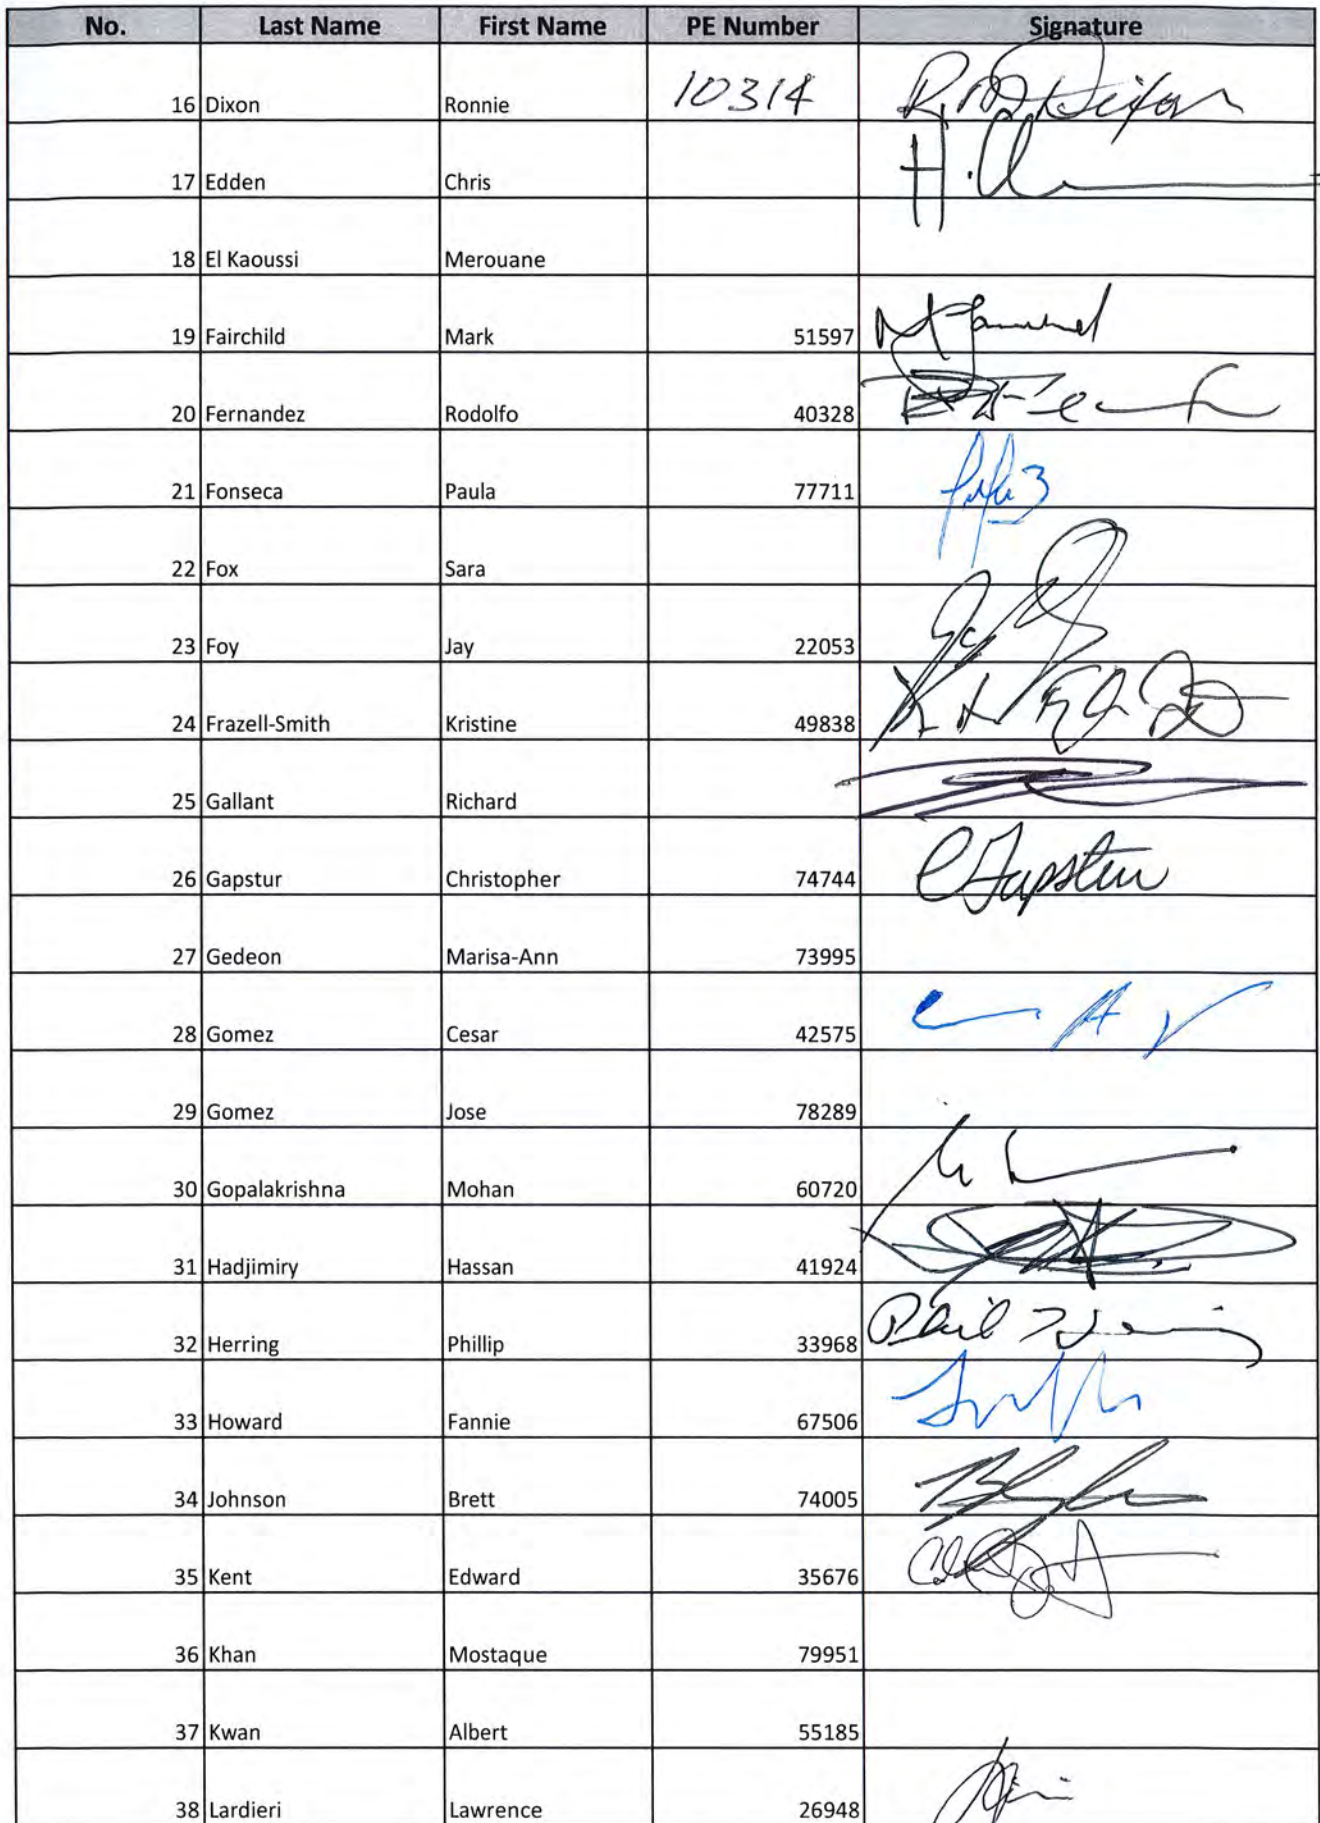 No. Last Name First Name PE Number Signature
16 Dixon Ronnie 10314 R. M. Dixon
17 Edden Chris
18 El Kaoussi Merouane
19 Fairchild Mark 51597
20 Fernandez Rodolfo 40328
21 Fonseca Paula 77711
22 Fox Sara
23 Foy Jay 22053
24 Frazell-Smith Kristine 49838
25 Gallant Richard
26 Gapstur Christopher 74744 C Gapstur
27 Gedeon Marisa-Ann 73995
28 Gomez Cesar 42575
29 Gomez Jose 78289
30 Gopalakrishna Mohan 60720
31 Hadjimiry Hassan 41924
32 Herring Phillip 33968 Phil Herring
33 Howard Fannie 67506
34 Johnson Brett 74005
35 Kent Edward 35676
36 Khan Mostaque 79951
37 Kwan Albert 55185
38 Lardieri Lawrence 26948